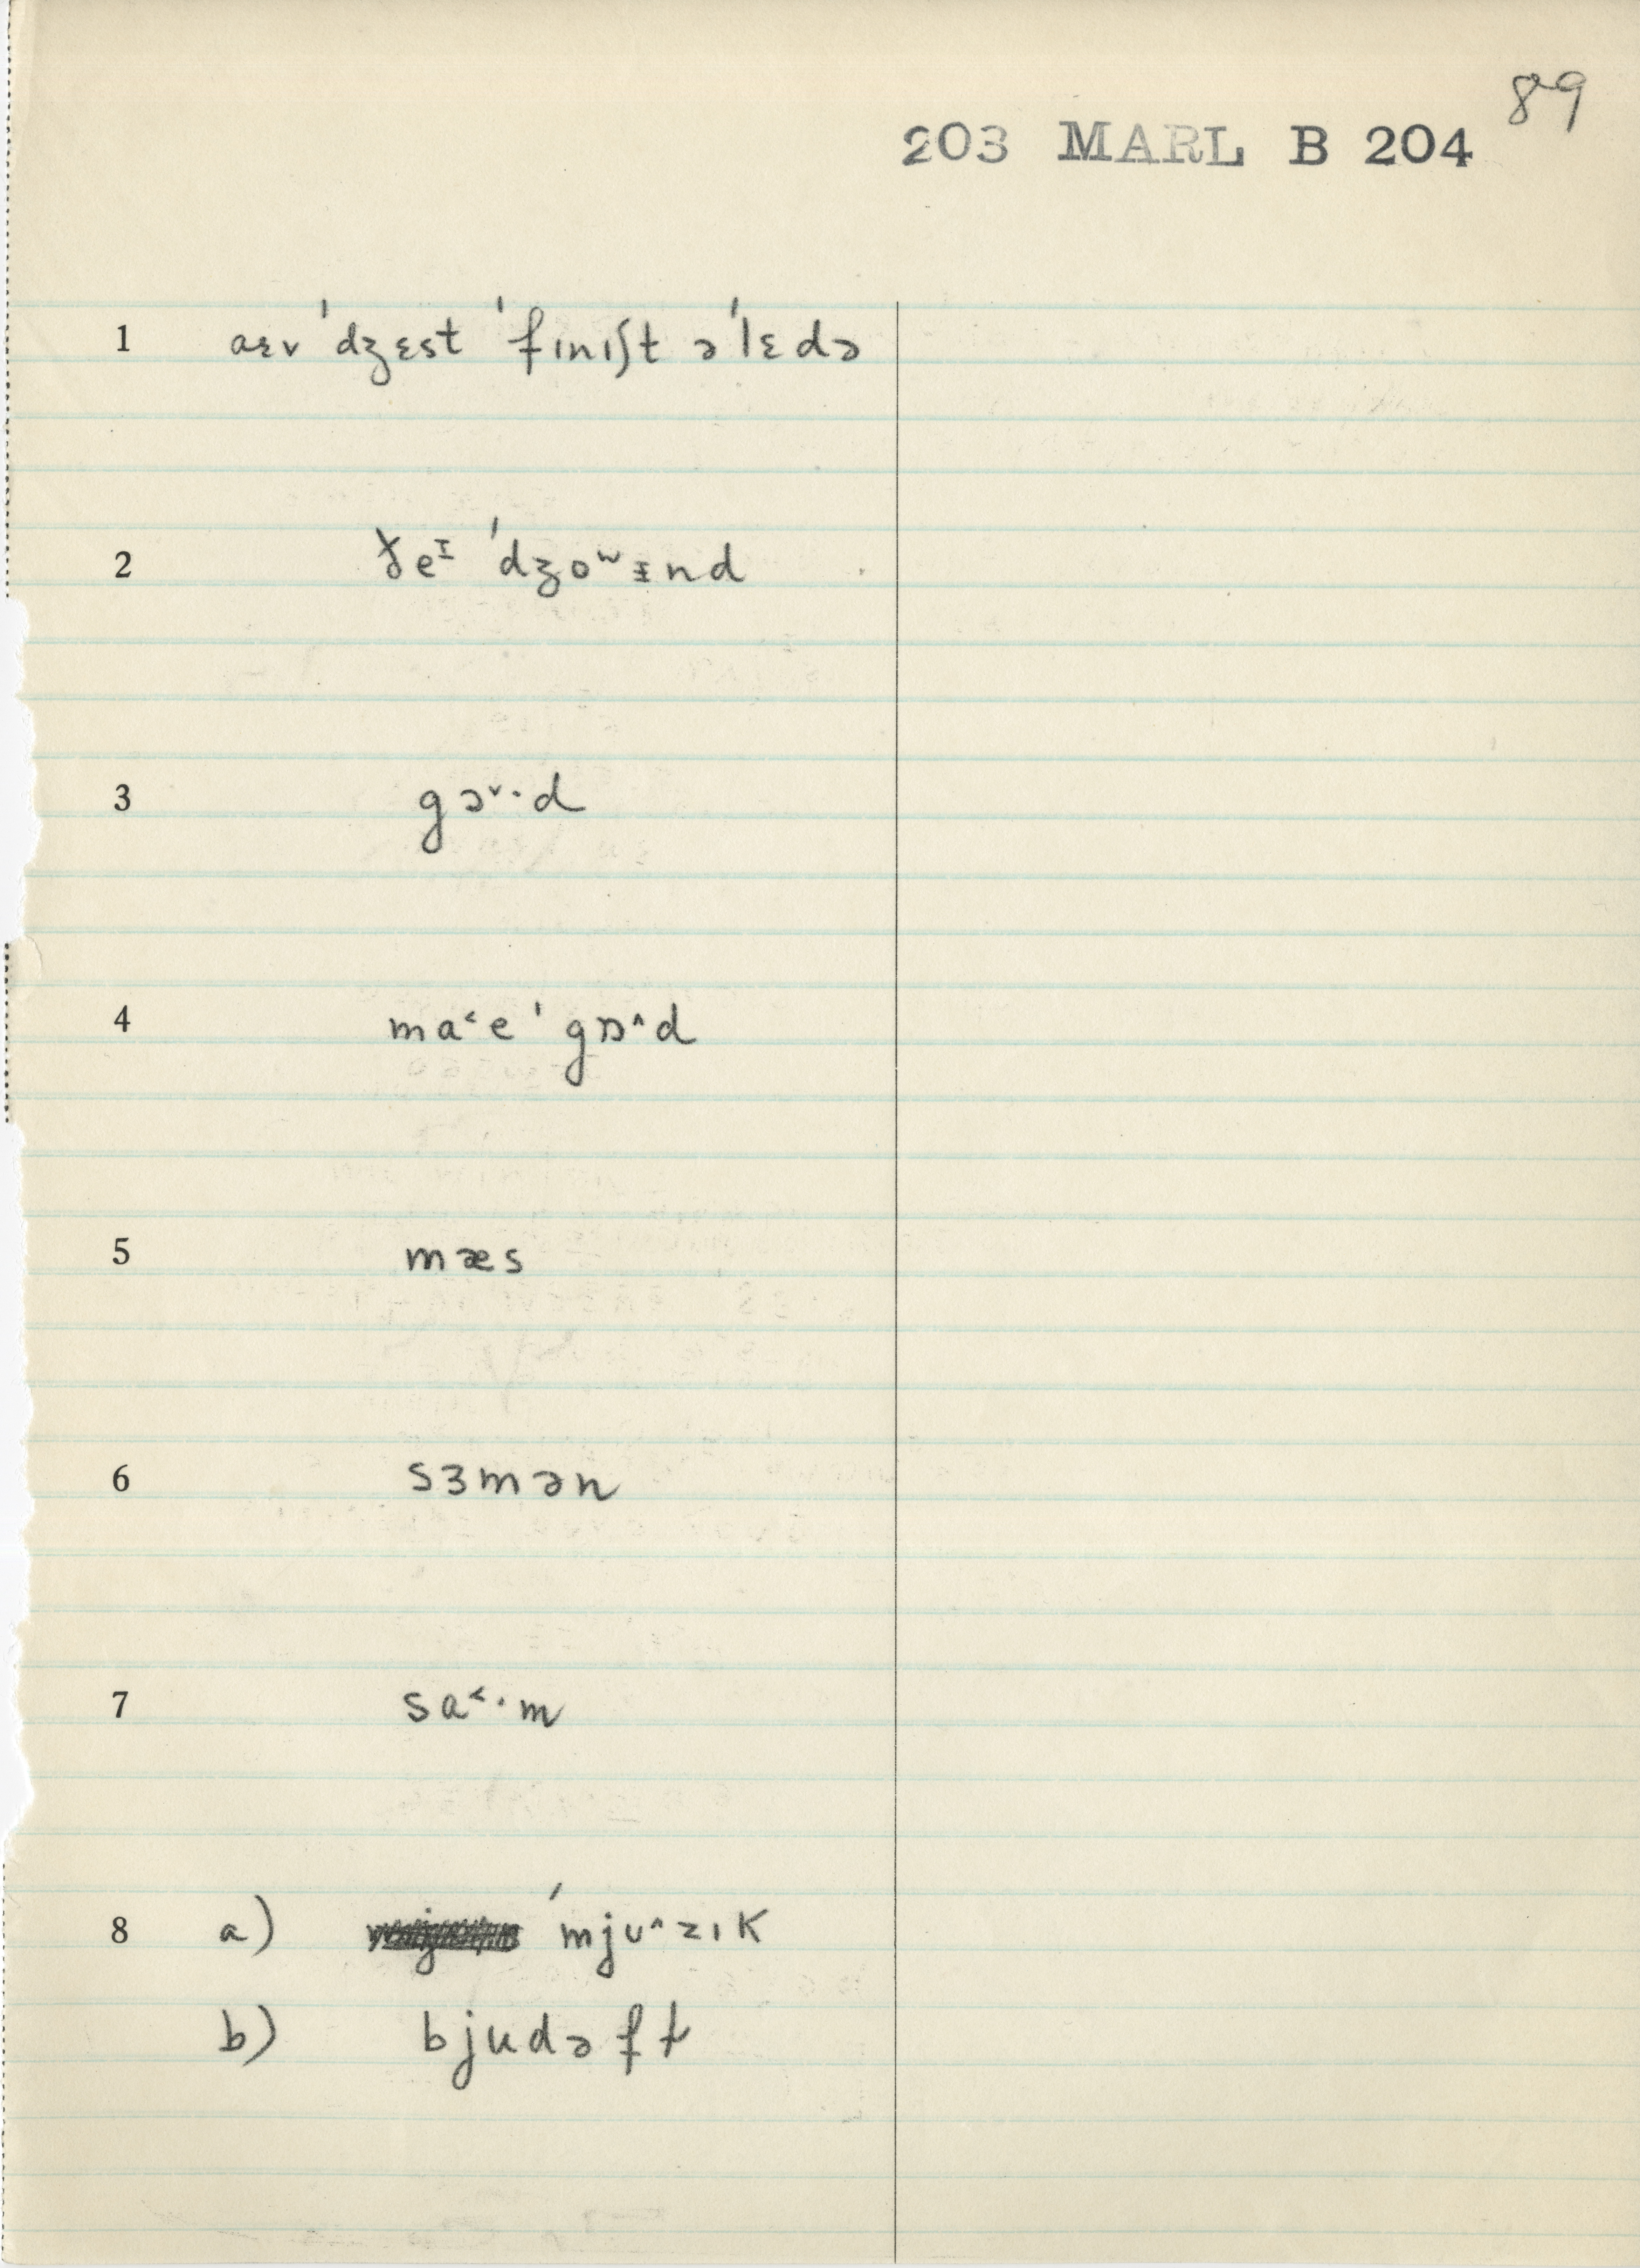 89
203 MARL B 204
1 aɛv ˈdʒɛst ˈfɪnɪʃt əˈlɛdə
2 ðeᴵ ˈdʒoʷɪnd
3 gɔᵛ·d
4 ma˂e ˈgɒ^d
5 mæs
6 sɜmən
7 sa˂·m
8 a) ˈmjʊ^zɪk
b) bjudəft